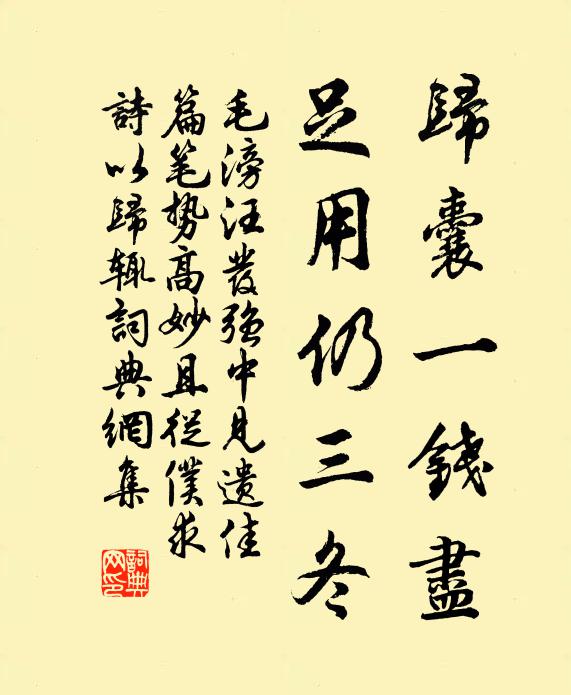 歸囊一錢盡
足用仍三冬
毛滂汪發强中見遗佳
篇笔势高妙且從僕求
詩以歸辄詞典網集
詞典网印